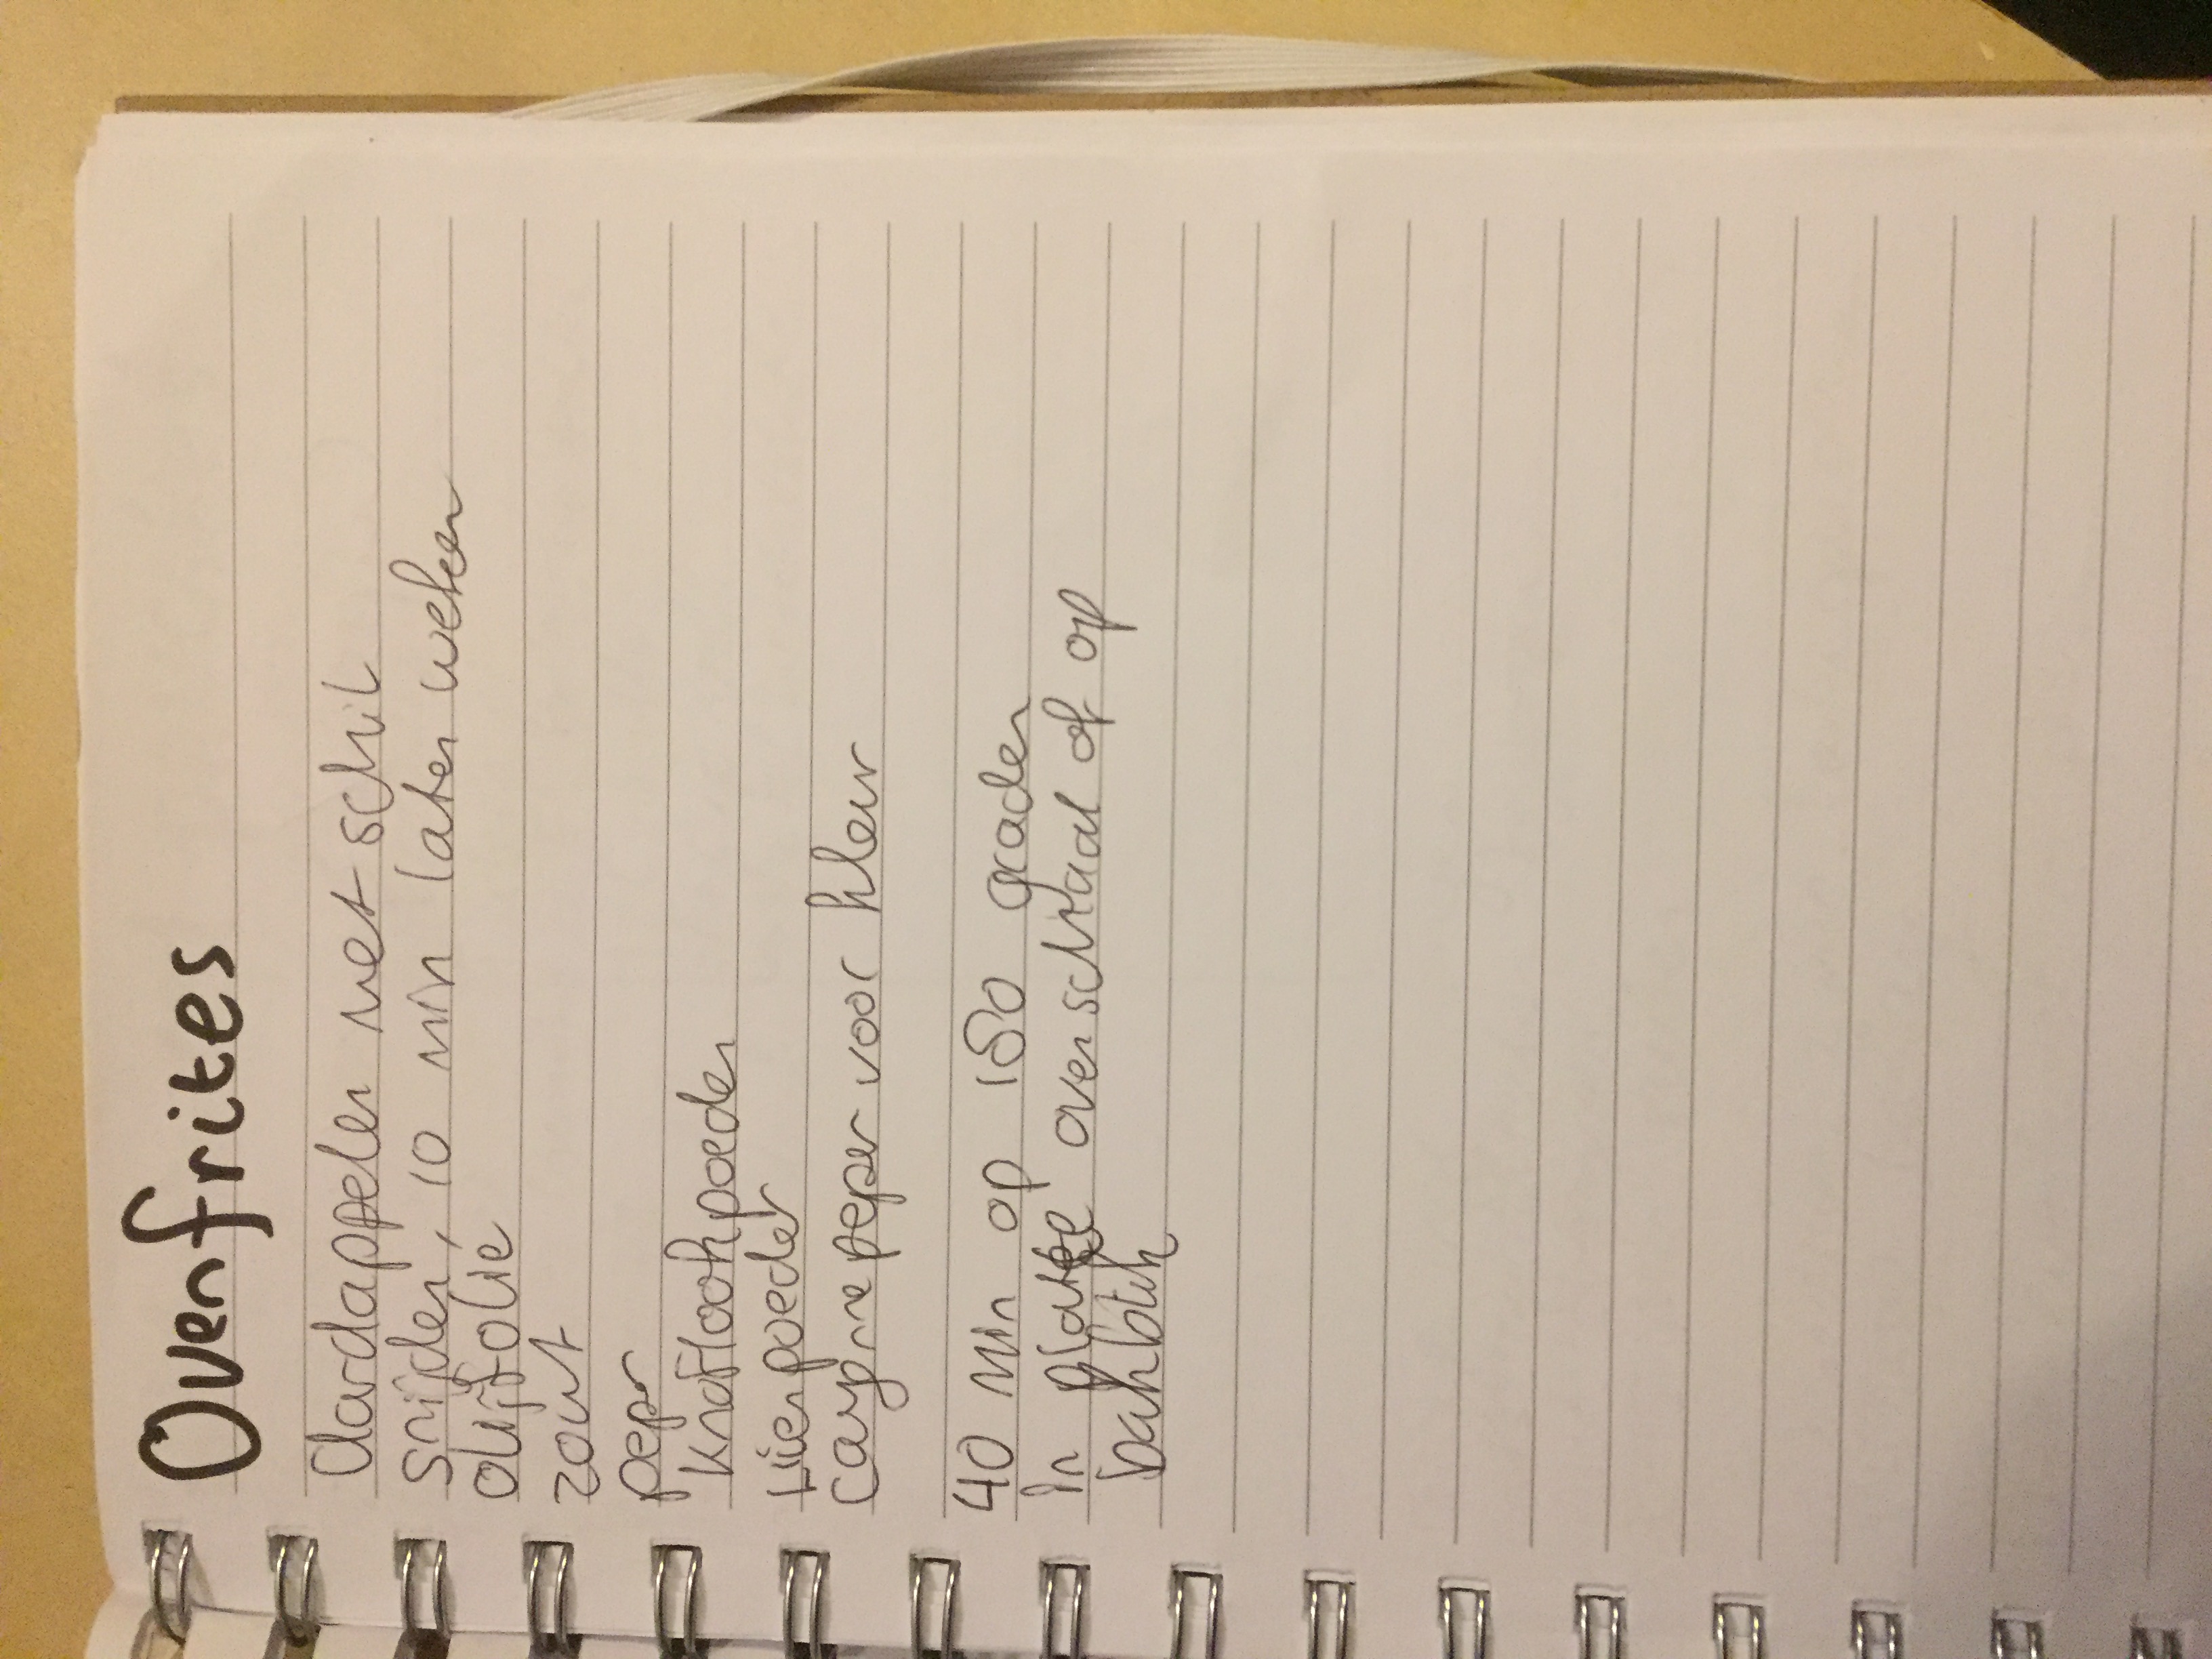 Ovenfrites
Aardappelen met schil
snijden, 10 min laten weken
olijfolie
zout
peper
knoflookpoeder
uienpoeder
cayennepeper voor kleur
40 min op 180 graden
in platte ovenschaal of op
bakblik